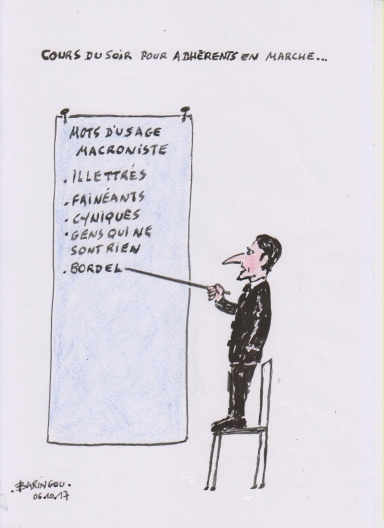 COURS DU SOIR POUR ADHÈRENTS EN MARCHE...
MOTS D'USAGE
MACRONISTE
. ILLETTRÉS
. FAINÉANTS
. CYNIQUES
. GENS QUI NE
SONT RIEN
. BORDEL
. BARINGOU.
06.10.17